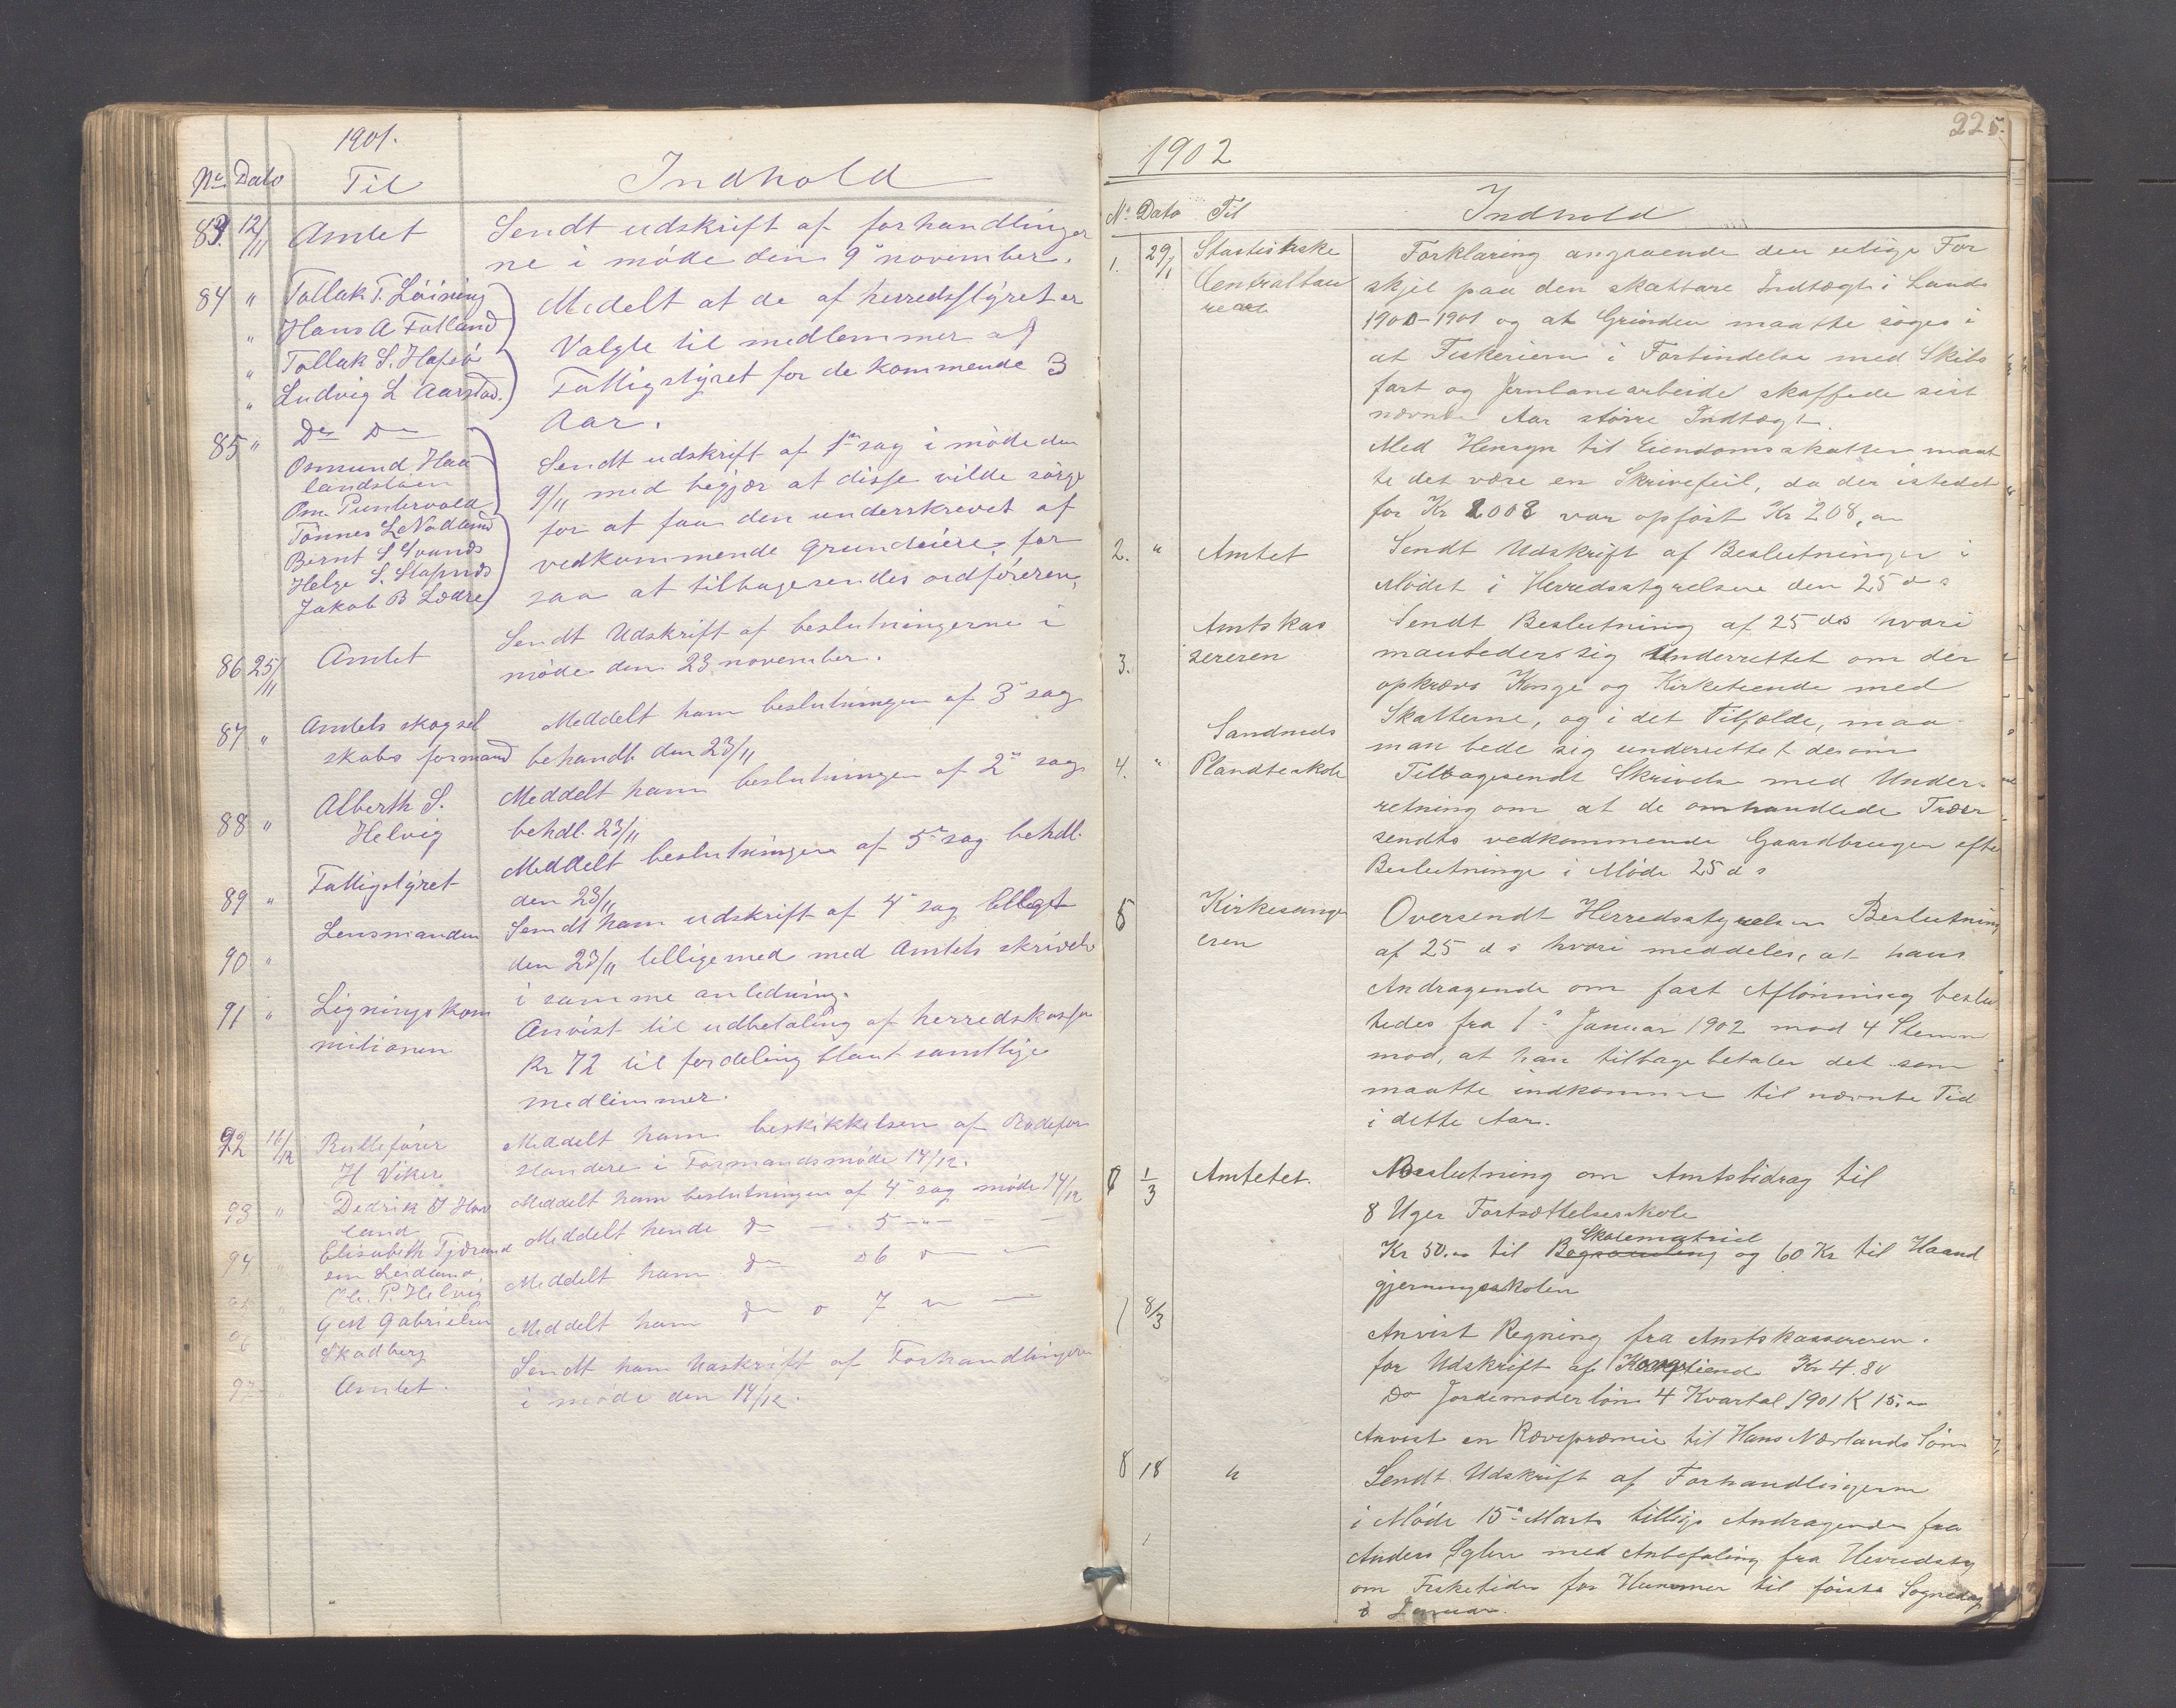 1901.
No Dato Til Indhold
83 12/11 Amtet Sendt udskrift af forhandlinger
ne i møde den 9de november.
84 " Tollak T. Løining Medelt at de af herredsstyret er
" Hans A Fotland Valgte til medlemmer af
" Tollak S. Hafsø Fattigstyret for de kommende 3
" Ludvig L Aarstad. Aar.
85 " Do Do Sendt udskrift af 1ste sag i møde den
Osmund Haa
landsløen 9/11 med begjær at disse vilde sørge
Om. Puntervold for at faa den underskrevet af
Tønnes L Nodland
Bernt S Svands vedkommende grundeiere for
Helge S. Stapnes
Jakob B Lædre saa at tilbagesendes ordføreren,
86 25/11 Amtet Sendt Udskrift af beslutningerne i
møde den 23 november.
87 " Amtets skogsel Meddelt ham beslutningen af 3die sag
skabs formand behandlt den 23/11
88 " Alberth S. Meddelt ham beslutningen af 2den sag
Helvig behdl. 23/11
89 " Fattigstyret Meddelt beslutningen af 5te sag behdl.
den 23/11
90 " Lensmanden Sendt ham udskrift af 4de sag
den 23/11 tilligemed med Amtets skrivelse
i samme anledning.
91 " Ligningskom Anvist til udbetaling af herredskassen
mitionen Kr 72 til fordeling blant samtlige
medlimmer.
92 16/12 Rullefører Meddelt ham beskikkelsen af Rodefor
H Viker standere i Formandsmøde 14/12.
93 " Dedrik T Hov Meddelt ham beslutningen af 4de sag møde 14/12
land
94 " Elisabeth Tjørand Meddelt hende do — 5 — " —
Ole. P. Helvig Meddelt ham do 6
G M Gabrielsen Meddelt ham do 7
Skadberg
97 Amtet. Sendt ham Udskrift af Forhandlingerne
i møde den 14/12.
225.
1902
No Dato Til Indhold
1. 29/1 Statistiske Forklaring angaaende den ulige For
Centralbau skjel paa den skatbare Indtægt i Lands
reau 1900-1901 og at Grunden maatte søges i
at Fiskerierne i Forbindelse med Skibs
fart og Jernbanearbeide skaffede sist
nævnte Aar større Indtægt.
Med Hensyn til Eiendomsskatten maat
te det være en Skrivefeil, da der istedet
for Kr 2008 var opført Kr 208,00
2. " Amtet Sendt Udskrift af Beslutninger i
Mødet i Herredsstyrelsen den 25 ds
3. Amtskas Sendt Beslutning af 25 ds hvori
sereren man beder sig underrettet om der
opkræves Konge og Kirketiende med
Skatterne, og i det Tilfælde, maa
man bede sig underrettet derom
4. " Sandnes Tilbagesendt Skrivelse med Under-
Plandteskole retning om at de omhandlede Træer
sendtes vedkommende Gaardbruger efter
Beslutninge i Møde 25 ds
5 Kirkesange Oversendt Herredsstyrelsen Beslutning
eren af 25 ds hvori meddeles, at hans
Andragende om fast Aflønning beslu
tedes fra 1ste Januar 1902 mod 4 Stemm
mod, at han tilbagebetaler det som
maatte indkomme til nævnte Tid
i dette Aar.
1/3 Amtetet. Beslutning om Amtsbidrag til
8 Uger Fortsættelsesskole
Skolematriel
Kr 50.00 til Bogsamling og 60 Kr til Haand
gjerningsskolen
8/3 Anvist Regning fra Amtskassereren.
for Udskrift af Kongetiende Kr 4.80
Do Jordemoderløn 4 Kvartal 1901 K 15.00
Anvist en Rævepræmie til Hans Nærlands Søn
8 18 " Sendt Udskrift af Forhandlingerne
i Møde 15de Marts tillige Andragende fra
Anders med Anbefaling fra Herredsty
om Fisketiden for Hummer til første Søgnedag
i Januar.